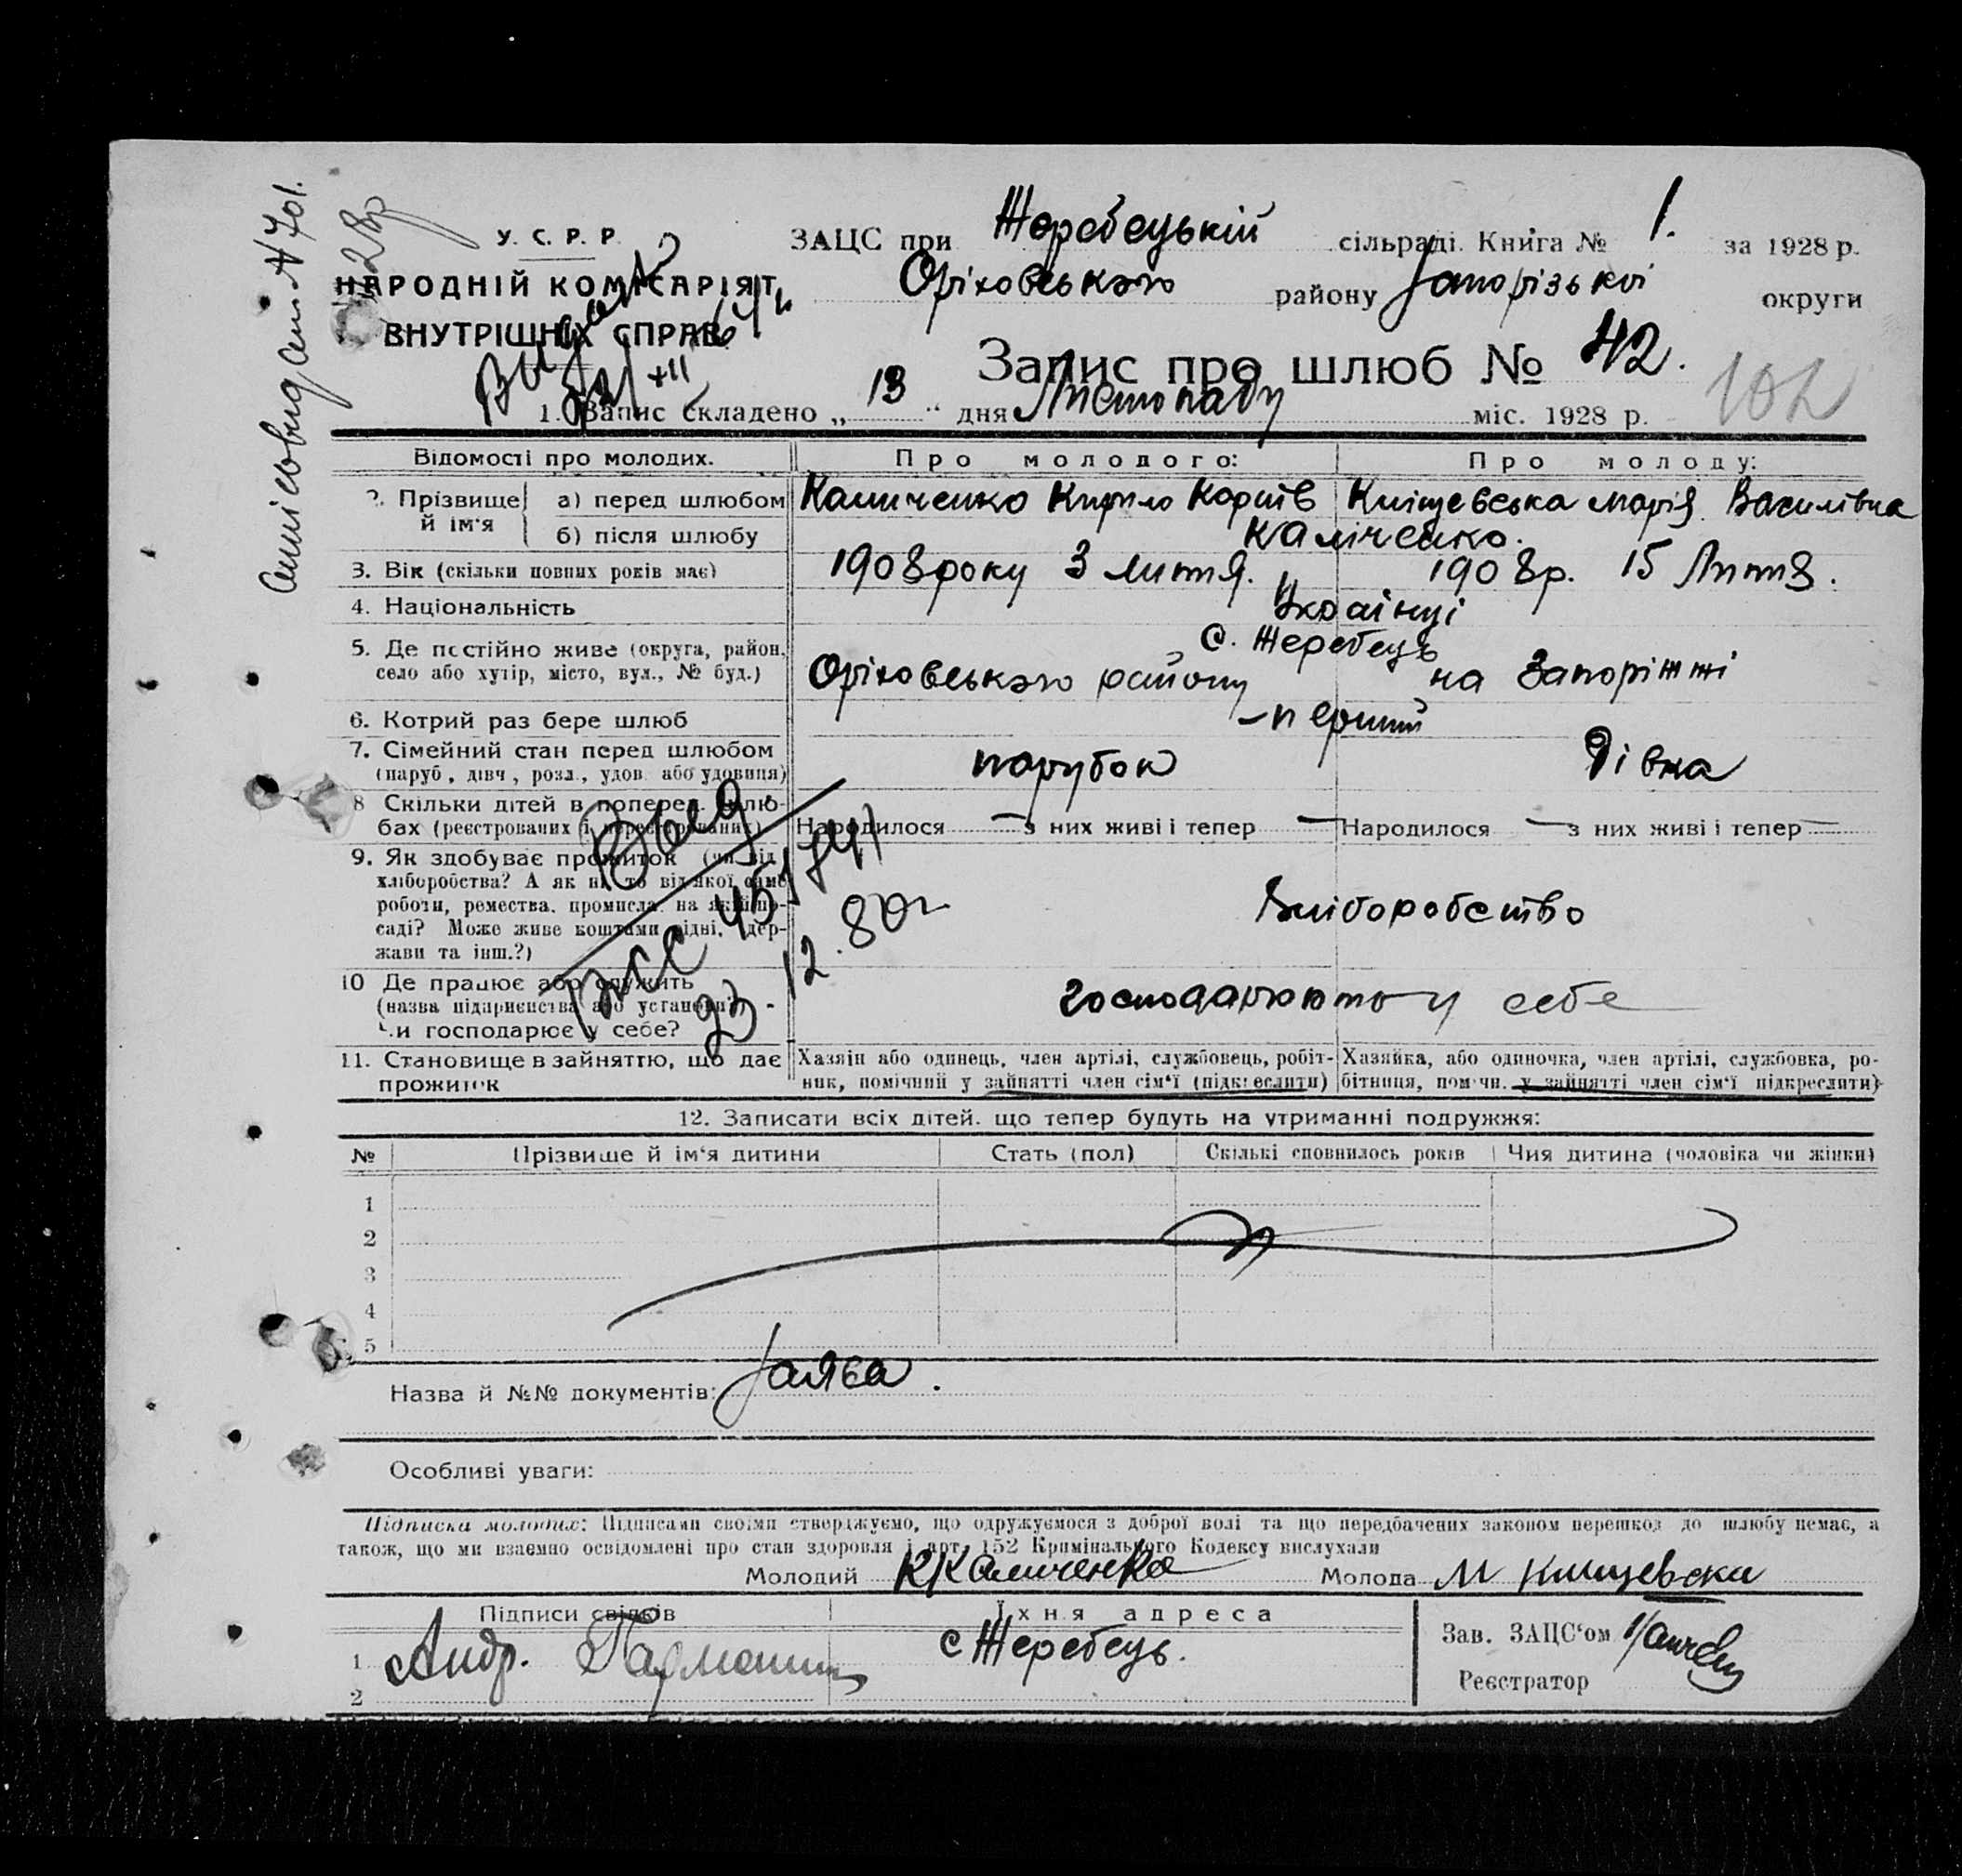 У. С. Р. Р.
НАРОДНІЙ КОМІСАРІЯТ
ВНУТРІШНІХ СПРАВ
ЗАЦС при Жеребецькій сільраді. Книга № 1. за 1928 р.
Оріховського району Запорізької округи
Запис про шлюб № 42.
102
1. Запис складено „ 13 “ дня Листопаду міс. 1928 р.
Відомості про молодих. Про молодого: Про молоду:
2. Прізвище й ім'я
а) перед шлюбом Каличенко Кирило Кліщевська Марія Василівна
б) після шлюбу Каліченко.
3. Вік (скільки повних років має) 1908 року 3 1908 р. 15
4. Національність Українці
5. Де постійно живе (округа, район, село або хутір, місто, вул., № буд.) с. Жеребець
Оріховського району на Запоріжжі
6. Котрий раз бере шлюб – перший
7. Сімейний стан перед шлюбом
(паруб., дівч., розл., удов. або удовиця) парубок Дівка
8 Скільки дітей в поперед. шлюбах (реєстрованих і нереєстрованих) Народилося — з них живі і тепер — Народилося — з них живі і тепер —
9. Як здобуває прожиток (чи від
хліборобства? А як ні, то від якої саме
роботи, ремества, промисла, на якій по-
саді? Може живе коштами рідні, дер-
жави та інш.?)
Хліборобство
10 Де працює або служить
(назва підприємства або установи)
чи господарює у себе?
господарюють у себе
11. Становище в зайняттю, що дає
прожиток
Хазяін або одинець, член артілі, службовець, робіт-
ник, помічний у зайнятті член сім'ї (підкреслити)
Хазяйка, або одиночка, член артілі, службовка, ро-
бітниця, помічн. у зайнятті член сім'ї підкреслити)
12. Записати всіх дітей, що тепер будуть на утриманні подружжя:
№ Прізвище й ім'я дитини Стать (пол) Скількі сповнилось років Чия дитина (чоловіка чи жінки)
1
2
3
4
5
Назва й №№ документів: Заява.
Особливі уваги:
Підписка молодих: Підписами своіми стверджуємо, що одружуємося з доброї волі та що передбачених законом перешкод до шлюбу немає, а
також, що ми взаємно освідомлені про стан здоровля і арт. 152 Кримінального Кодексу вислухали
Молодий К Каличенко Молода М Клищевска
Підписи свідків Їхня адреса
1 Андр. с Жеребець.
2
Зав. ЗАЦС'ом
Реєстратор
Выд.
23. 12. 80г